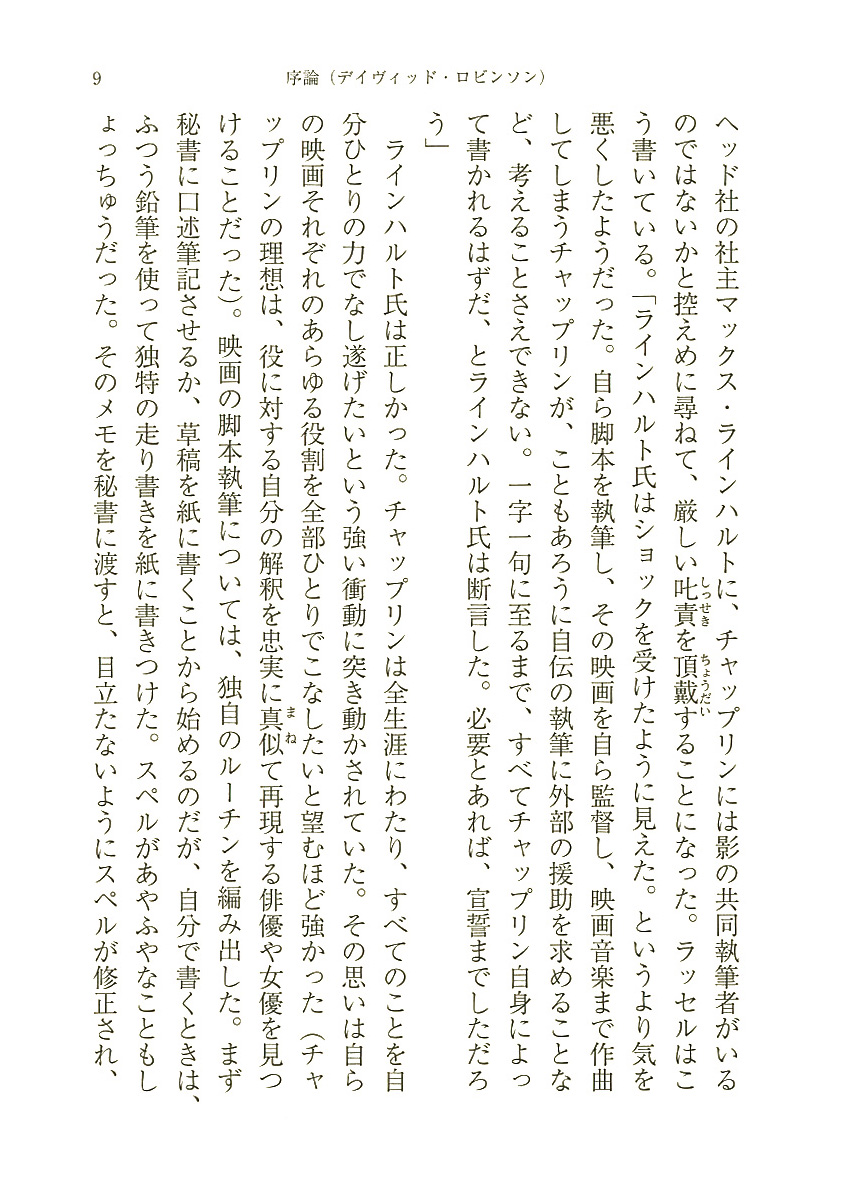 9
序論（デイヴィッド・ロビンソン）
ヘッド社の社主マックス・ラインハルトに、チャップリンには影の共同執筆者がいる
のではないかと控えめに尋ねて、厳しい叱責を頂戴することになった。ラッセルはこ
しっせき
ちょうだい
う書いている。「ラインハルト氏はショックを受けたように見えた。というより気を
悪くしたようだった。自ら脚本を執筆し、その映画を自ら監督し、映画音楽まで作曲
してしまうチャップリンが、こともあろうに自伝の執筆に外部の援助を求めることな
ど、考えることさえできない。一字一句に至るまで、すべてチャップリン自身によっ
て書かれるはずだ、とラインハルト氏は断言した。必要とあれば、宣誓までしただろ
う」
ラインハルト氏は正しかった。チャップリンは全生涯にわたり、すべてのことを自
分ひとりの力でなし遂げたいという強い衝動に突き動かされていた。その思いは自ら
の映画それぞれのあらゆる役割を全部ひとりでこなしたいと望むほど強かった（チャ
ップリンの理想は、役に対する自分の解釈を忠実に真似て再現する俳優や女優を見つ
まね
けることだった）。映画の脚本執筆については、独自のルーチンを編み出した。まず
秘書に口述筆記させるか、草稿を紙に書くことから始めるのだが、自分で書くときは、
ふつう鉛筆を使って独特の走り書きを紙に書きつけた。スペルがあやふやなこともし
ょっちゅうだった。そのメモを秘書に渡すと、目立たないようにスペルが修正され、